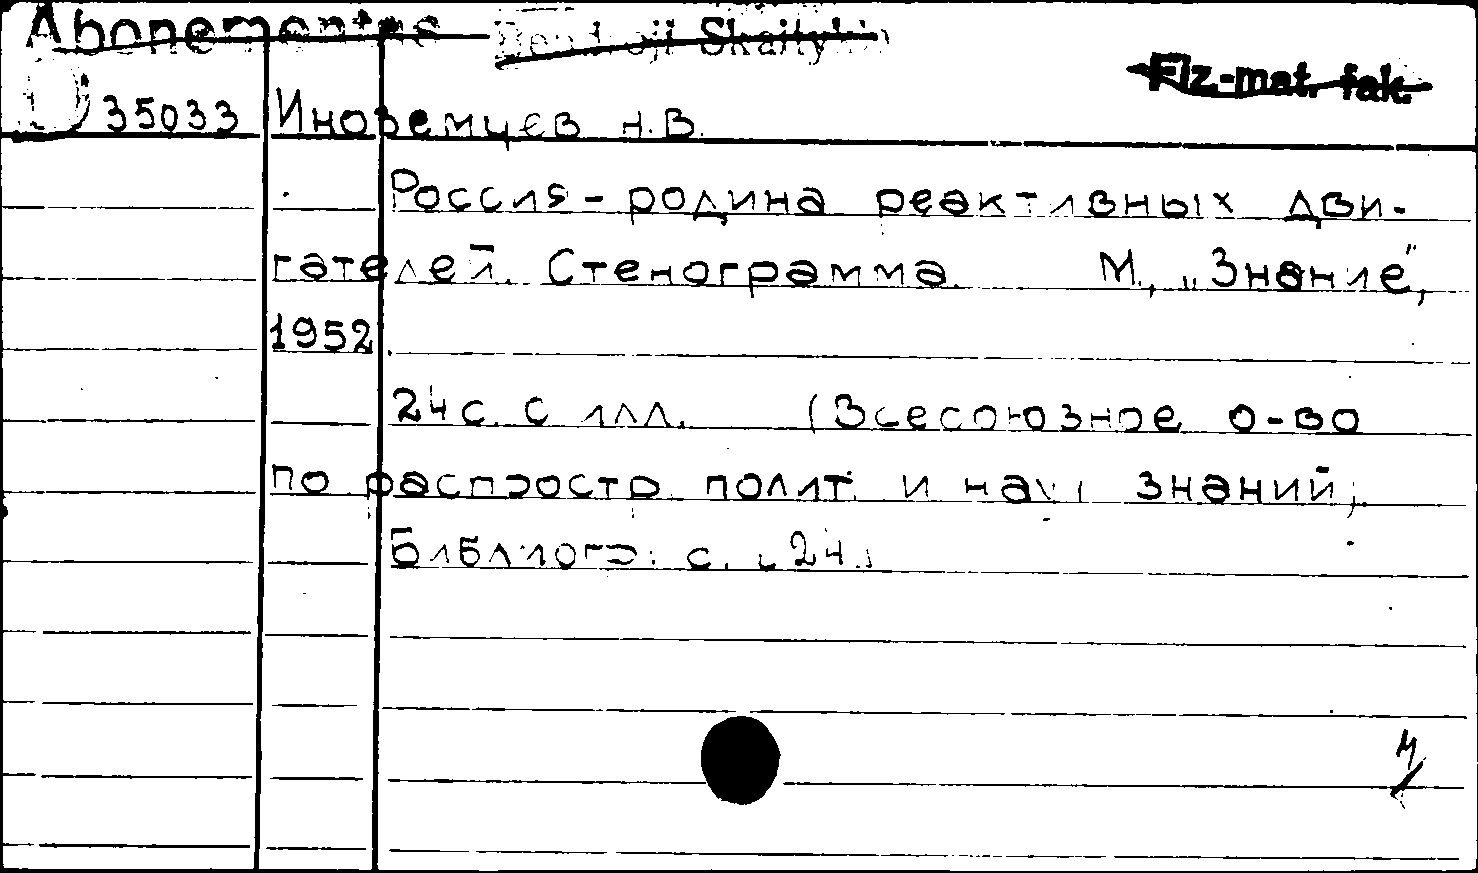 Abonementas Bendroji Skaitykla
Fiz.-mat. fak.
D 35033 Иноземцев Н.В.
Россия - родина реактивных дви-
гателей. Стенограмма. М., „Знание",
1952.
24с. с илл. (Всесоюзное о-во
по распростр. полит. и науч. знаний).
Библиогр: с. [24.]